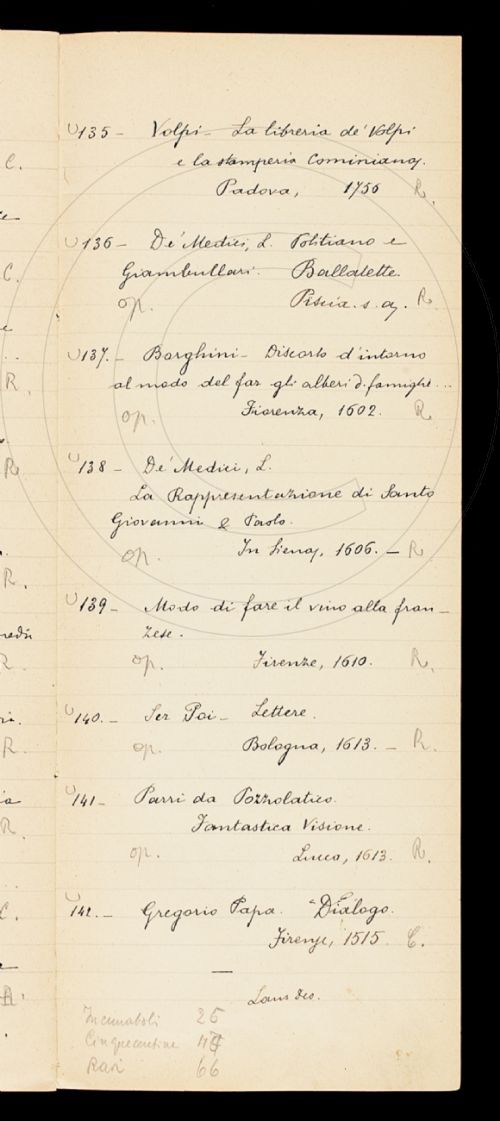 135 – Volpi – La libreria de' Volpi
e la stamperia Cominiana.
Padova, 1756 R.
136 – De' Medici, L. Politiano e
Giambullari. Ballatette.
op. Pescia. s. a. R.
137. – Borghini – Discorso d'intorno
al modo del far gli alberi d. famiglie...
op. Fiorenza, 1602. R.
138 – De' Medici, L.
La Rappresentazione di Santo
Giovanni e Paolo.
op. In Siena, 1606. – R
139 – Modo di fare il vino alla fran –
zese.
op. Firenze, 1610. R.
140. – Ser Poi – Lettere.
op. Bologna, 1613. – R.
141 – Parri da Pozzolatico.
Fantastica Visione.
op. Lucca, 1613. R.
142. – Gregorio Papa. Dialogo.
Firenze, 1515. C.
Laus deo.
Incunaboli 26
Cinquecentine
Rari 66
C.
C.
R.
R
R.
R.
R.
C.
R.